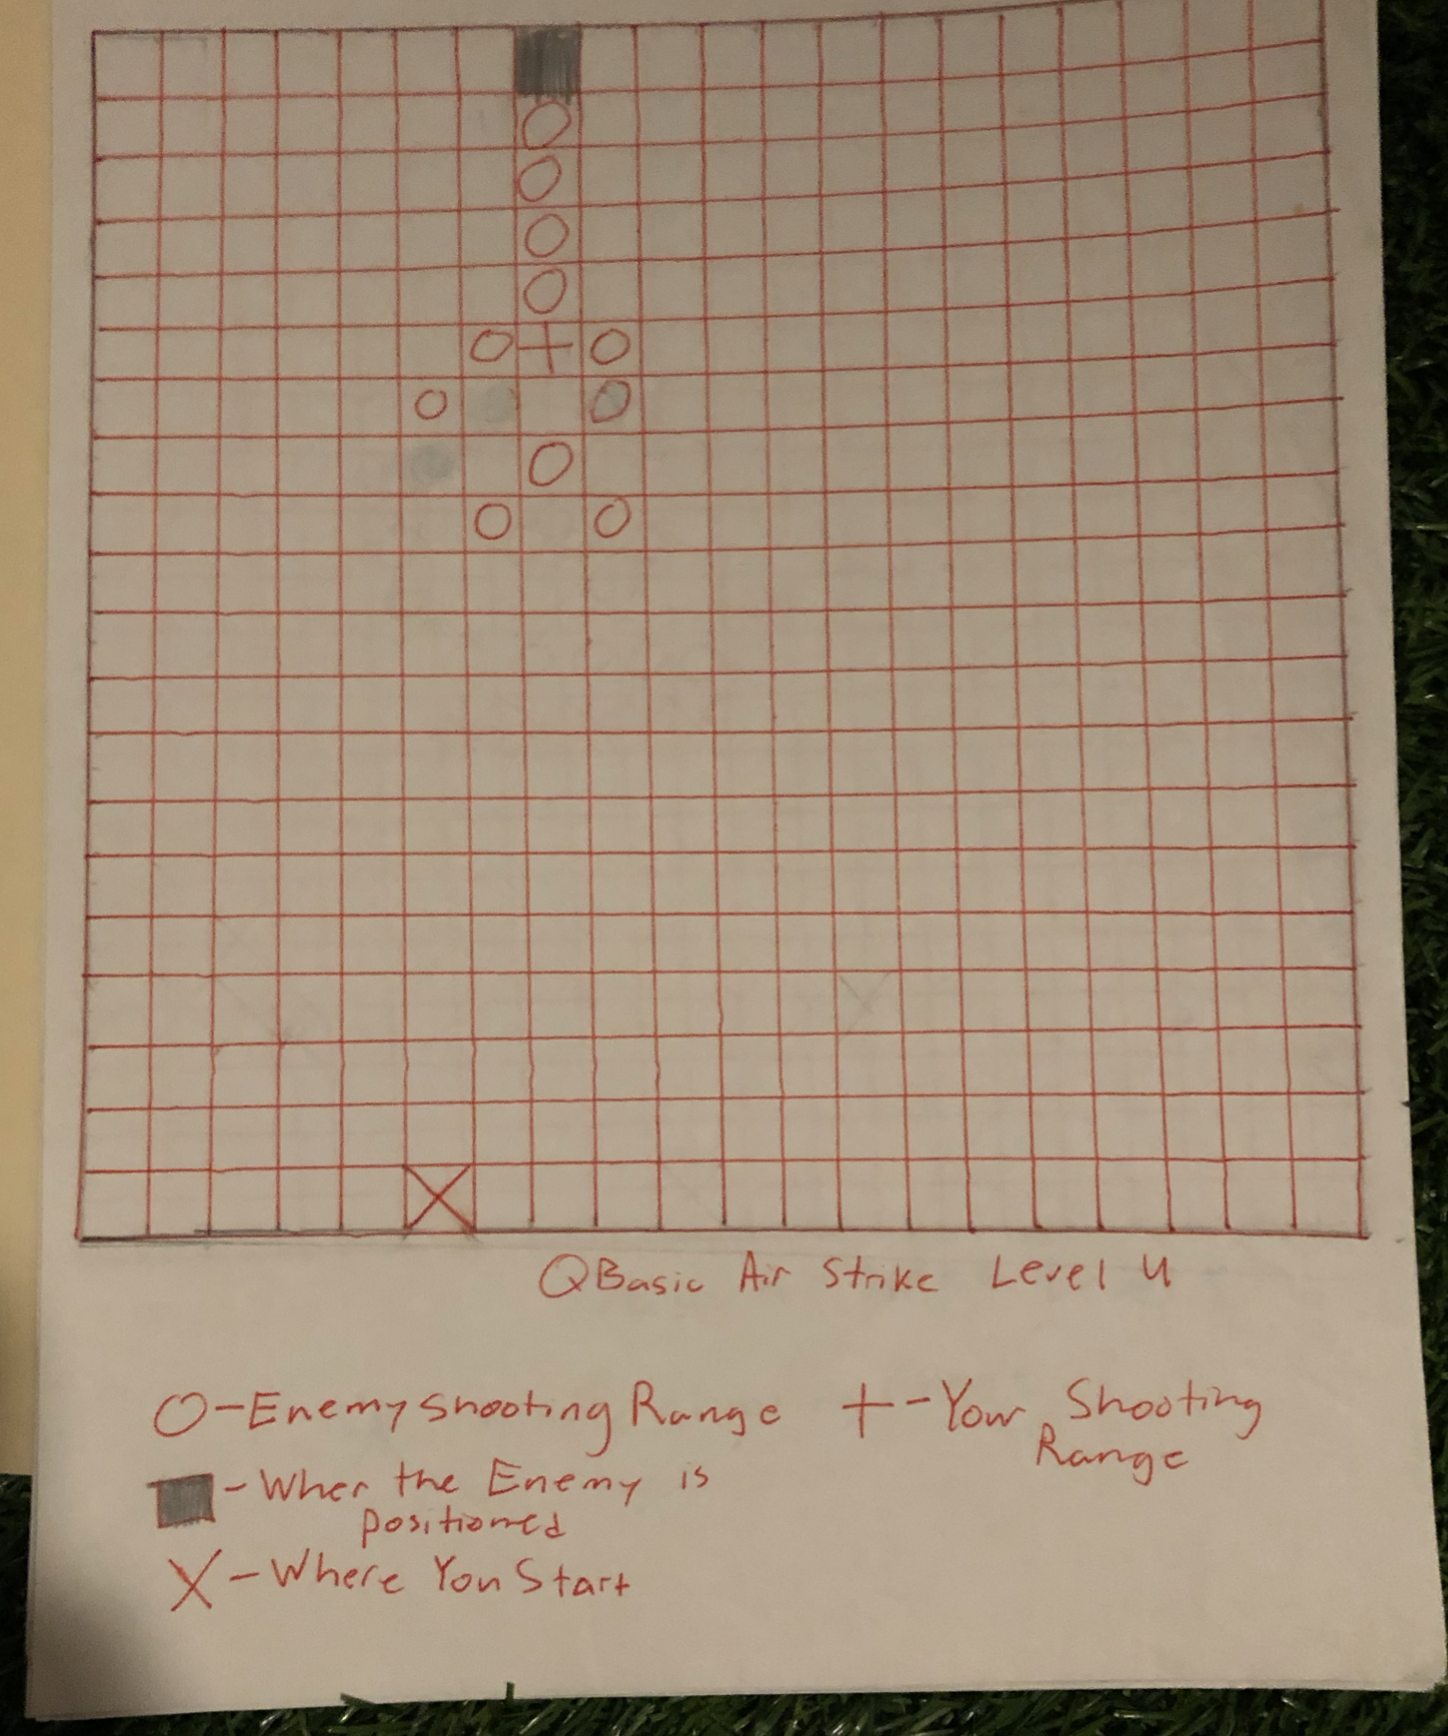 QBasic Air Strike Level 4
O-Enemy Shooting Range +-Your Shooting
Range
-Wher the Enemy is
positioned
X-Where You Start